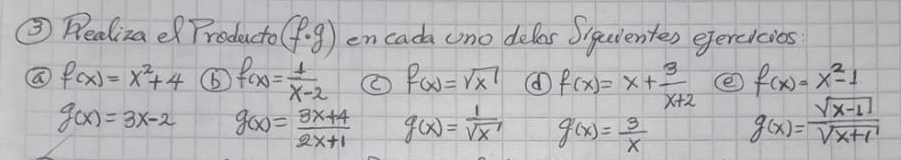 ③ Realiza el Producto (f·g) en cada uno de los Siguientes ejercicios:
ⓐ f(x) = x²+4 ⓑ f(x) = 1/(x-2) ⓒ f(x) = √x ⓓ f(x) = x + 3/(x+2) ⓔ f(x) = x²-1
g(x) = 3x-2 g(x) = (3x+4)/(2x+1) g(x) = 1/√x g(x) = 3/x g(x) = √(x-1)/√(x+1)